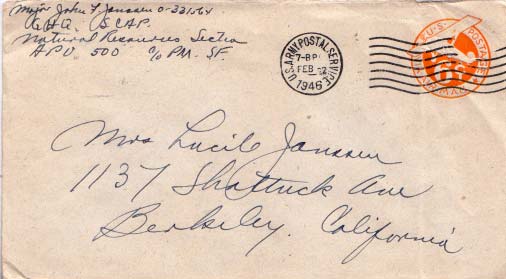 Major John F Janssen 0-331564
G.H.Q. SCAP.
Natural Resources Section
APO 500 c/o PM. SF.
U.S. ARMY POSTAL SERVICE
7-PM
FEB
1946
U.S. POSTAGE
Mrs Lucile Janssen
1137 Shattuck Ave
Berkeley. California